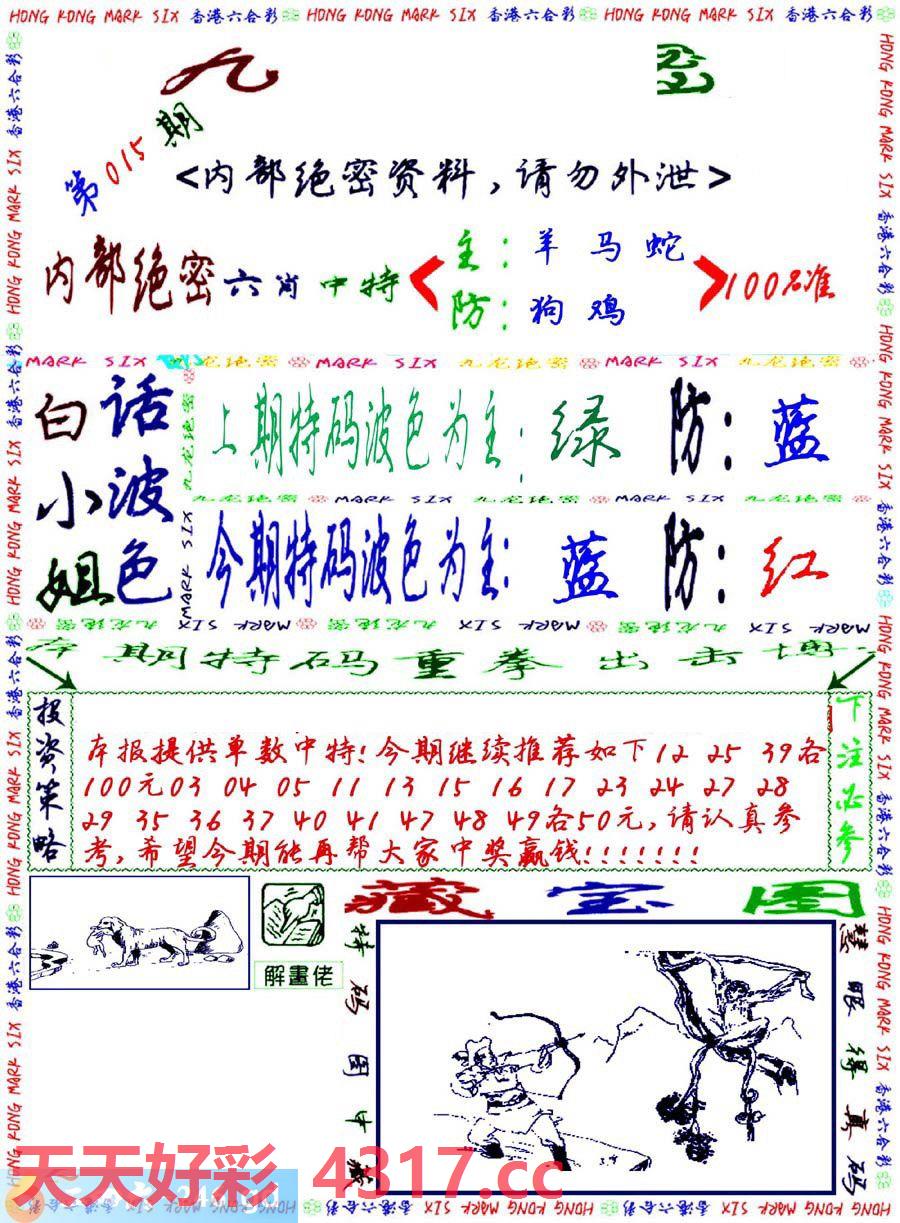 HONG KONG MARK SIX 香港六合彩 HONG KONG MARK SIX 香港六合彩 HONG KONG MARK SIX 香港六合彩
九
第015期
<内部绝密资料,请勿外泄>
内部绝密六肖中特
主:羊马蛇
防:狗鸡
100%准
MARK SIX 九龙绝密 MARK SIX 九龙绝密 MARK SIX 九龙绝密
白小姐
话波色
上期特码波色为主:绿 防:蓝
九龙绝密 MARK SIX 九龙绝密 MARK SIX 九龙绝密
今期特码波色为主:蓝 防:红
期特码重拳出击
投资策略
本报提供单数中特!今期继续推荐如下12 25 39各
100元03 04 05 11 13 15 16 17 23 24 27 28
29 35 36 37 40 41 47 48 49各50元,请认真参
考,希望今期能再帮大家中奖赢钱!!!!!!!
下注必参
解畫佬
藏宝图
特码图中
慧眼得真码
天天好彩 4317.cc